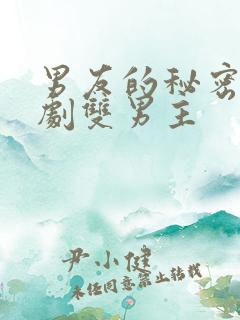 男友的秘密
劇雙男主
尹小健
未经同意禁止转载